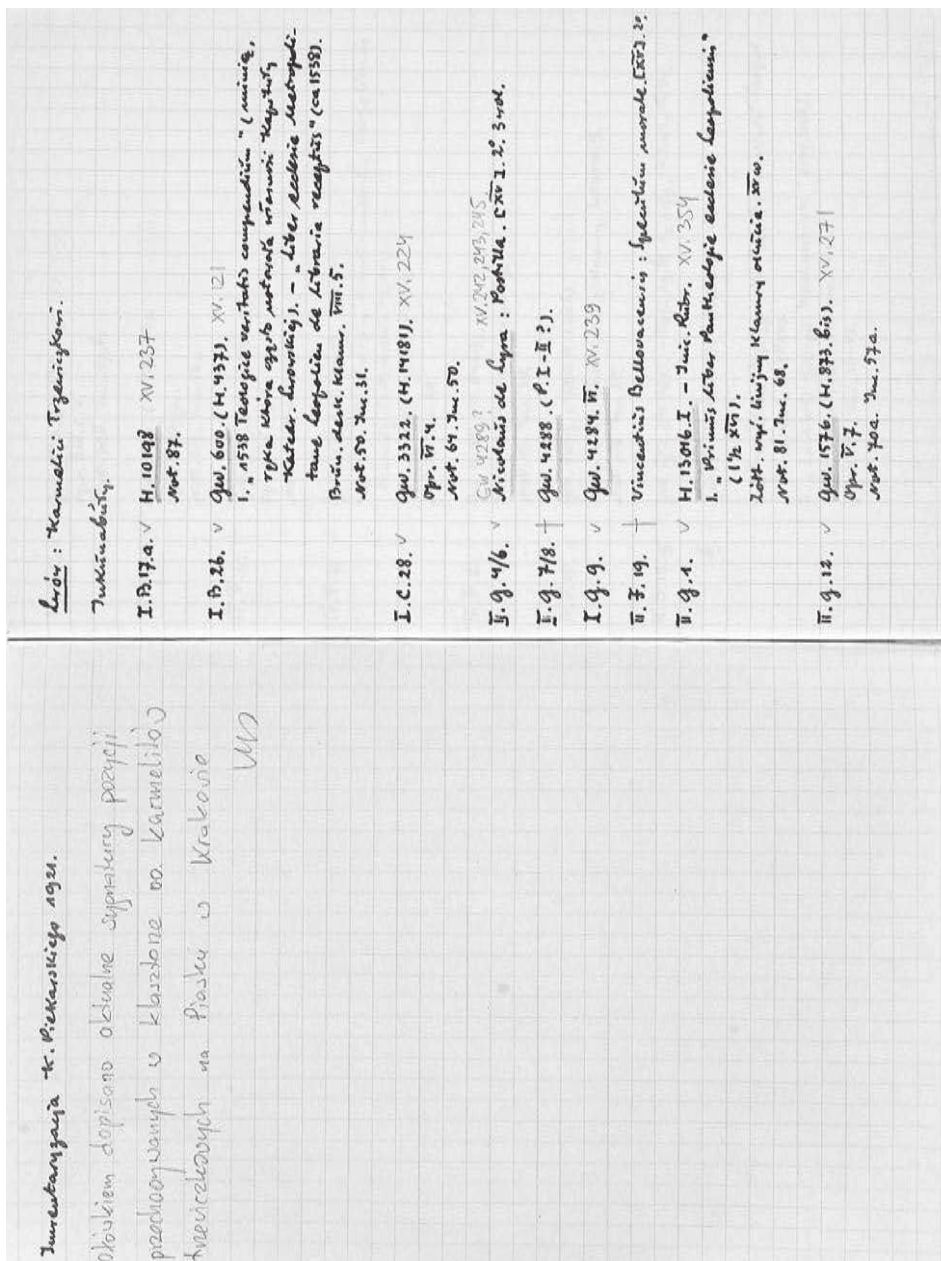 Inwentaryzacja K. Piekarskiego 1921.
ołówkiem dopisano aktualne sygnatury pozycji
przechowywanych w klasztorze oo. karmelitów
trzewiczkowych na Piasku w Krakowie
Lwów: Karmelici Trzewiczkowi.
Inkunabuły.
I.B.17.a. v H. 10198 XV.237
Not. 87.
I.B.26. v GW. 600. (H.437). XV.121
1. „1538 Teologie veritatis compendium" (minią,
ręka która często notowała własność Kapituły
Katedr. Lwowskiej). – „Liber ecclesie Metropoli-
tane Leopolien de libraria receptus" (ca 1538).
Brün. desk. klamr. VIII.5.
Not. 50. Inc. 31.
I.C.28. v GW. 3322. (H.1418). XV.224
Opr. VI.4.
Not. 64. Inc. 50.
GW 4289? XV.242,243,245
II.G.4/6. v Nicolaus de Lyra: Postilla. [XV]. 2°. 3 vol.
II.G.7/8. + GW. 4288. (P.I-II?).
I.G.9. v GW. 4284. VI. XV.239
II.F.19. + Vincentius Bellovacensis: Speculum morale. [XV]. 2°.
II.G.1. v H. 13016. I. – Inic. Rubr. XV.354
1. „Primus liber Pantheologie ecclesie Leopoliensis"
(1½ XVI).
Not. 81. Inc. 68.
II.G.12. v GW. 1576. (H.873.bis). XV.271
Opr. V.7.
Not. 70a. Inc. 57a.